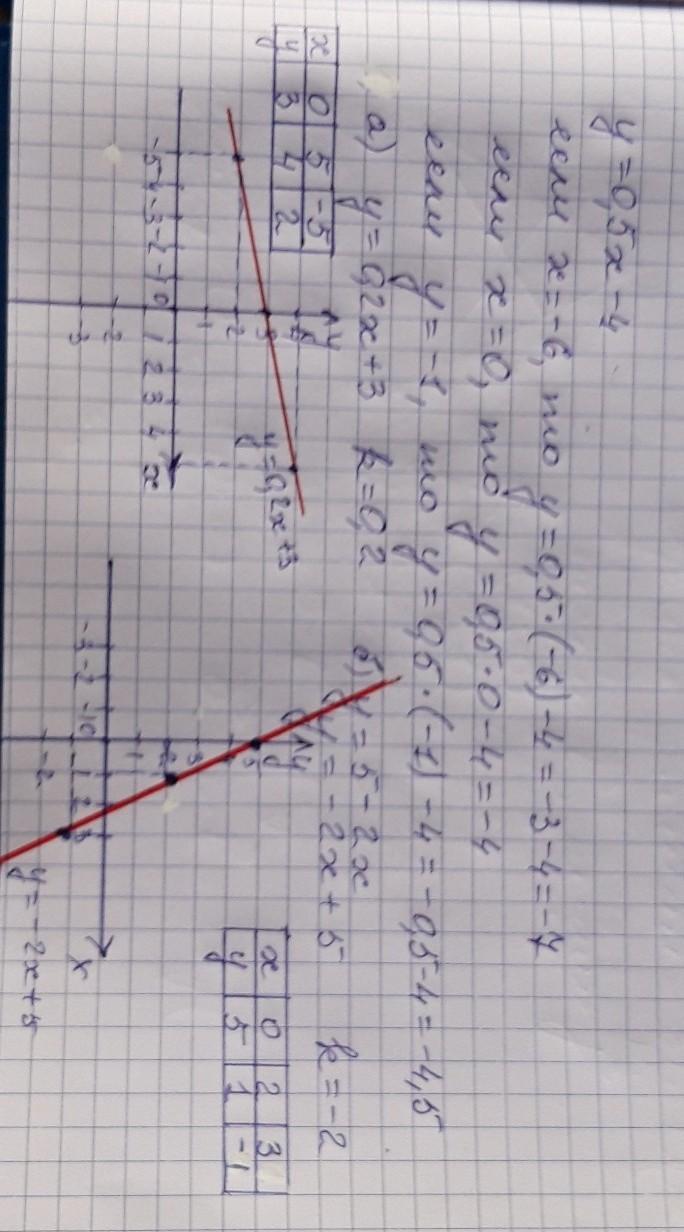 y = 0,5x - 4
если x = -6, то y = 0,5·(-6) - 4 = -3 - 4 = -7
если x = 0, то y = 0,5·0 - 4 = -4
если y = -1, то y = 0,5·(-1) - 4 = -0,5 - 4 = -4,5
а) y = 0,2x + 3 k = 0,2
x 0 5 -5
y 3 4 2
y
4
3
2
1
-5 -4 -3 -2 -1 0 1 2 3 4 x
-2
-3
y = 0,2x + 3
б) y = 5 - 2x
y = -2x + 5 k = -2
x 0 2 3
y 5 1 -1
y
5
3
2
1
-3 -2 -1 0 1 2 3 x
-2
y = -2x + 5